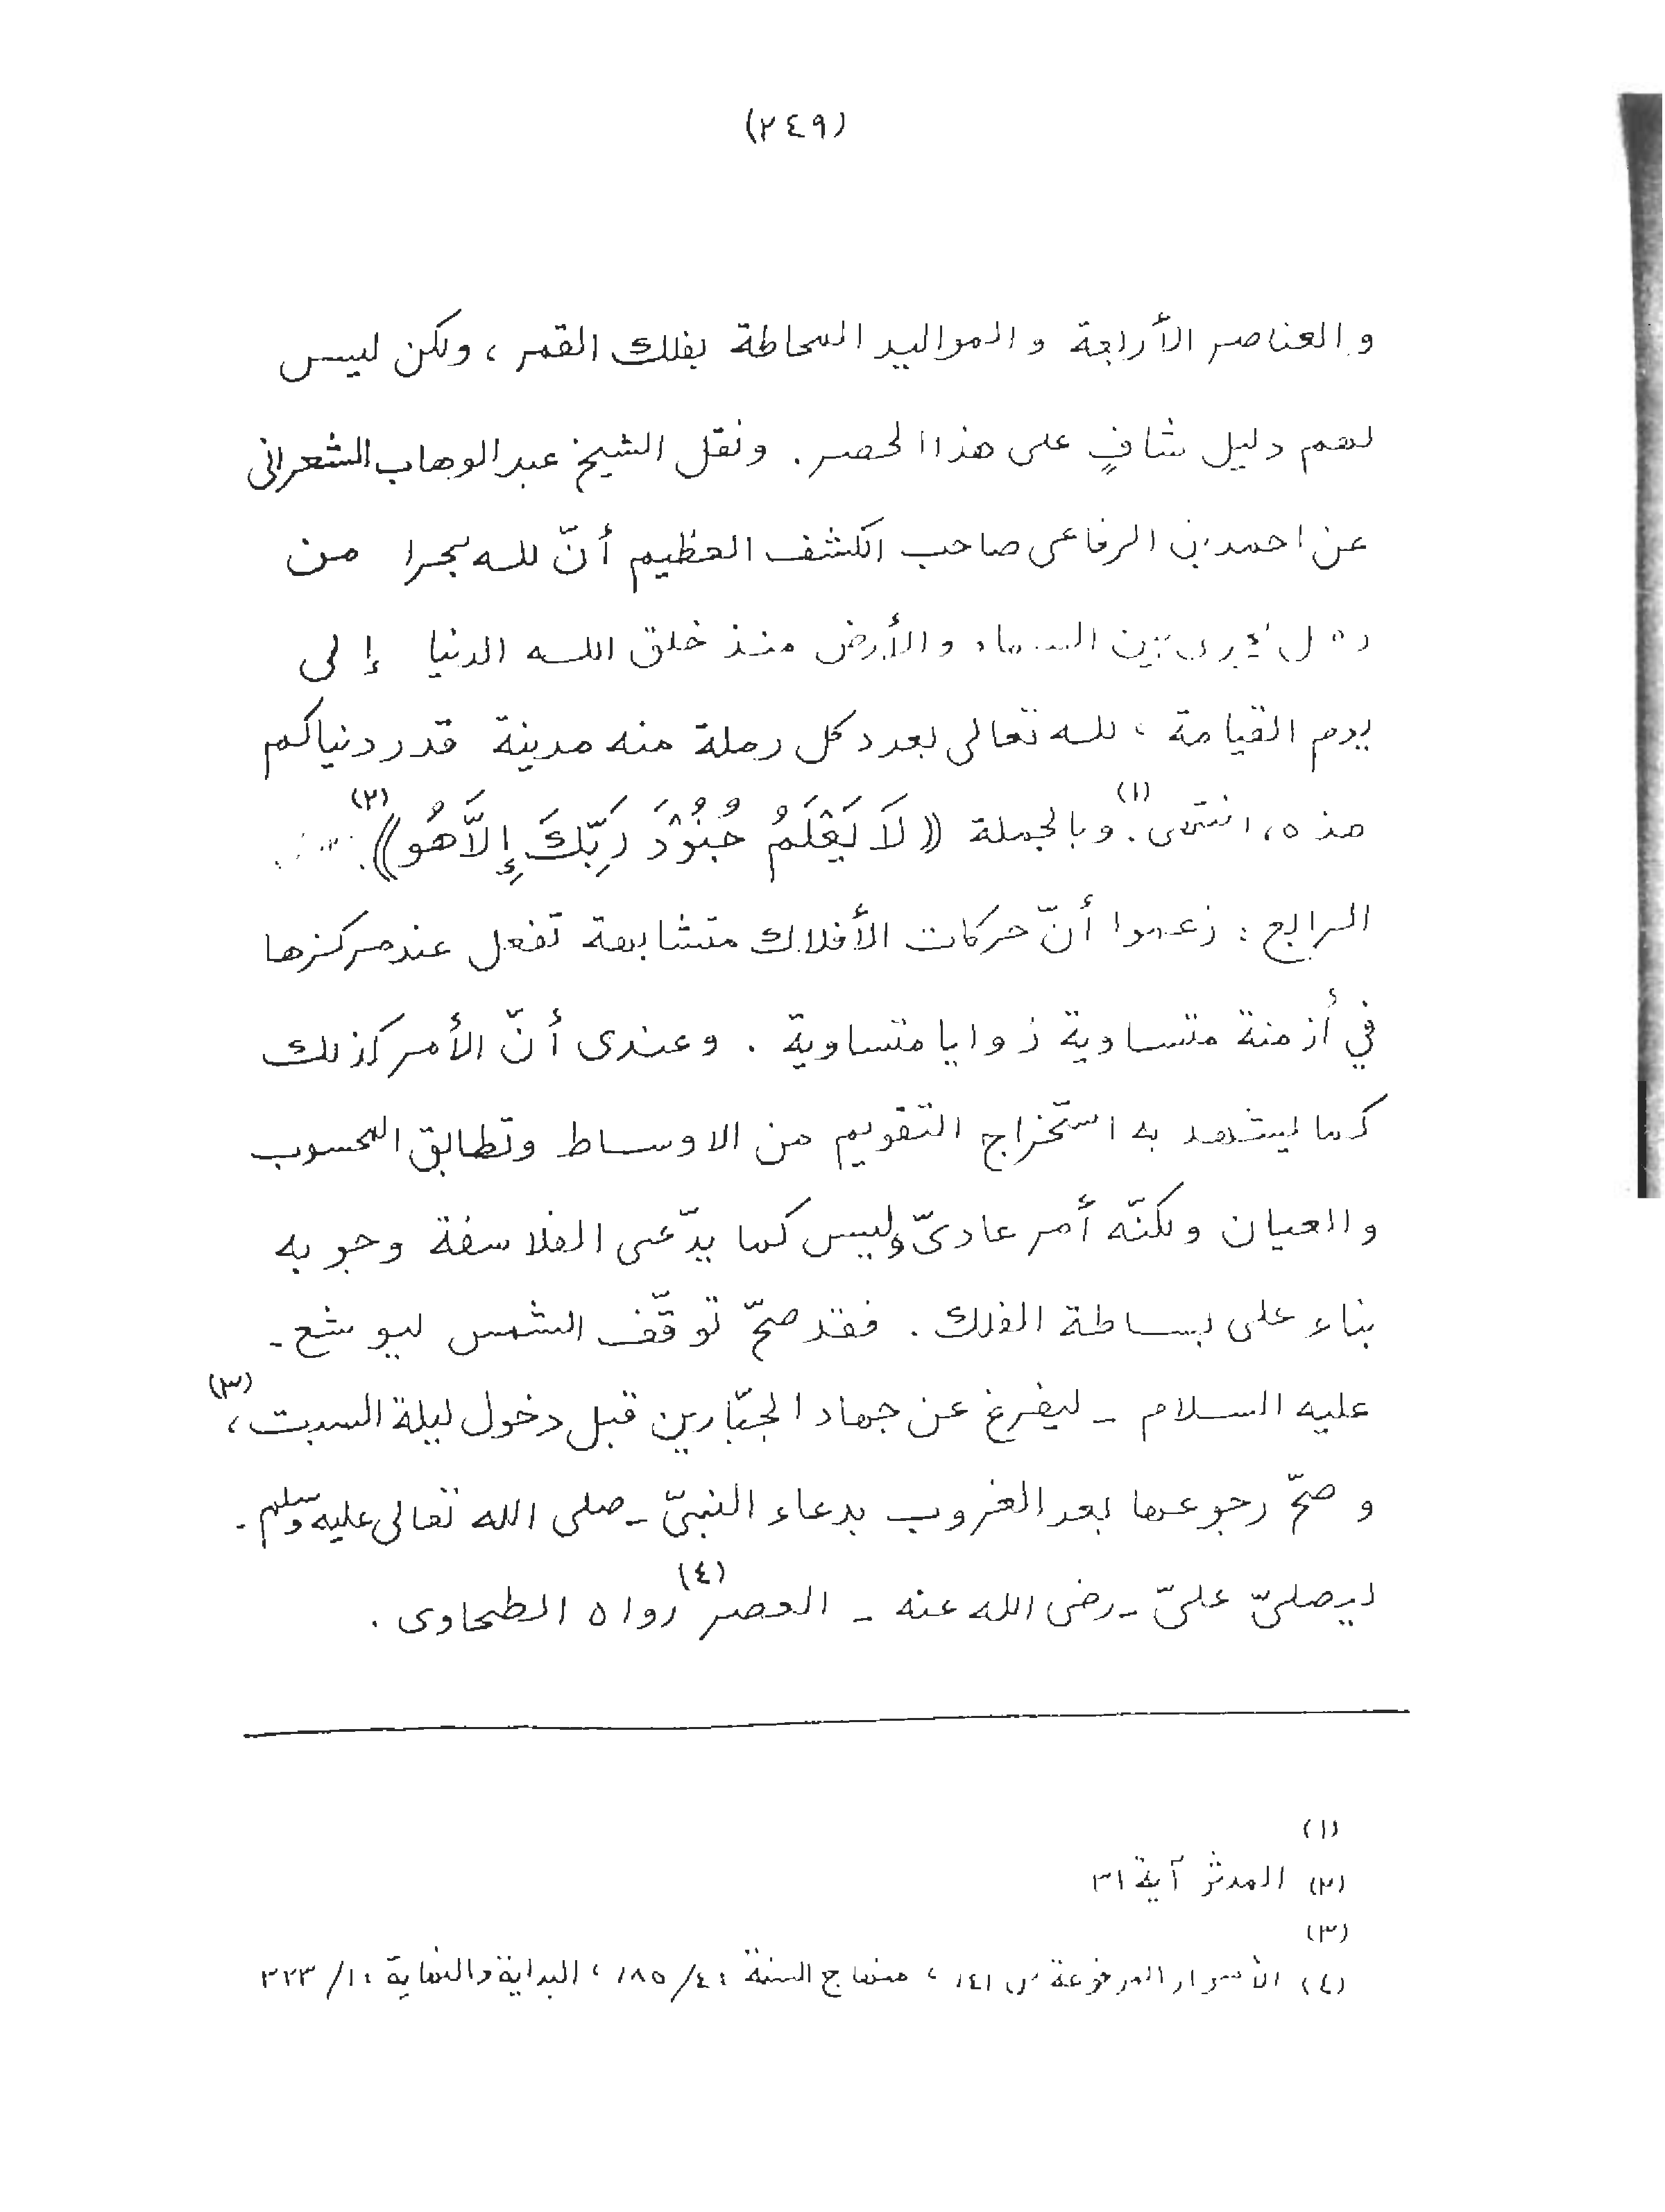 (٢٤٩)
والعناصر الأرابعة والمواليد المحاطة بفلك القمر، ولكن ليس
لهم دليل شافٍ على هذا الحصر. ونقل الشيخ عبد الوهاب الشعرانى
عن احمد بن الرفاعى صاحب الكشف العظيم أنّ لله بحرا من
رمل يجرى بين السماء والأرض منذ خلق الله الدنيا إلى
يوم القيامة، لله تعالى بعدد كل رملة منه مدينة قدر دنياكم
هذه، انتهى(١). وبالجملة ((لَا يَعْلَمُ جُنُوْدَ رَبِّكَ إِلاَّ هُو))(٢).
الرابع: زعموا أنّ حركات الأفلاك متشابهة تفعل عند مركزها
في أزمنة متساوية زوايا متساوية. وعندى أنّ الأمر كذلك
كما يشهد به استخراج التقويم من الاوساط وتطابق المحسوب
والعيان ولكنّه أمر عادىّ وليس كما يدّعى الفلاسفة وجوبه
بناء على بساطة الفلك. فقد صحّ توقّف الشمس ليوشع -
عليه السلام - ليفرغ عن جهاد الجبّارين قبل دخول ليلة السبت(٣)،
وصحّ رجوعها بعد الغروب بدعاء النبىّ - صلى الله تعالى عليه وسلم -
ليصلىّ علىّ - رضى الله عنه - العصر(٤) رواه الطحاوى.
(١)
(٢) المدثر آية ٣١
(٣)
(٤) الأسرار المرفوعة ص ١٤١، منهاج السنة ٤: /١٨٥، البداية والنهاية ١: /٣٢٣